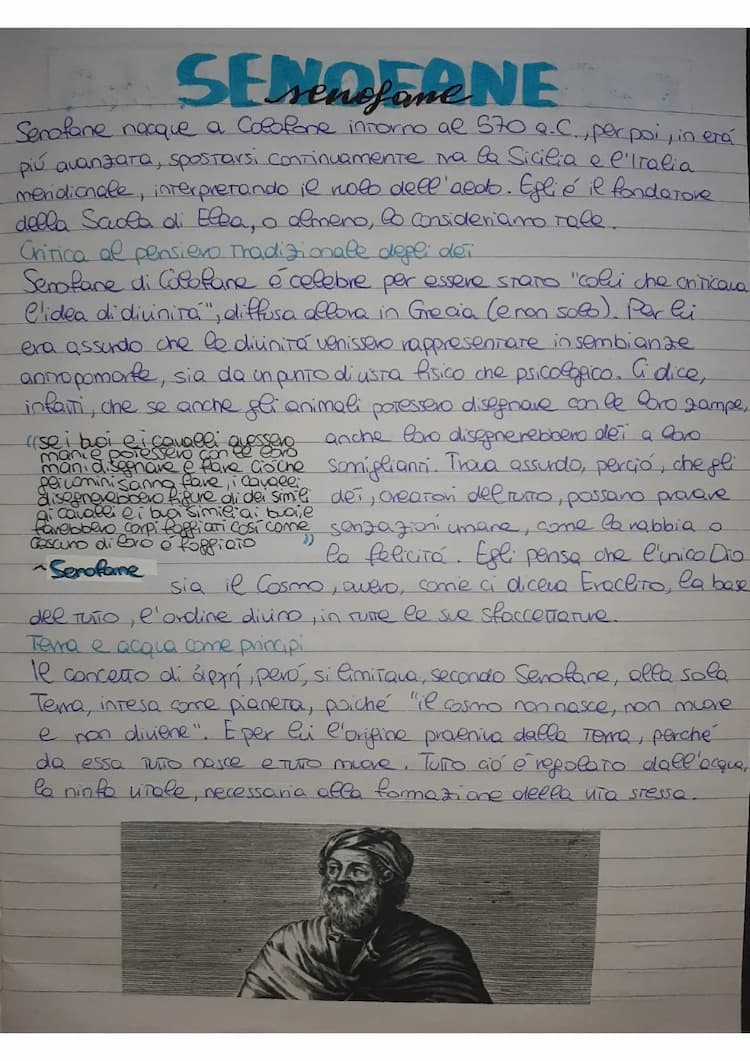 SENOFANE
senofane
Senofane nacque a Colofone intorno al 570 a.C., per poi, in età
più avanzata, spostarsi continuamente tra la Sicilia e l'Italia
meridionale, interpretando il ruolo dell'aedo. Egli é il fondatore
della Scuola di Elea, o almeno, lo consideriamo tale.
Critica al pensiero tradizionale degli dei
Senofane di Colofone é celebre per essere stato "colui che criticava
l'idea di divinitá", diffusa allora in Grecia (e non solo). Per lui
era assurdo che le divinitá venissero rappresentate in sembianze
antropomorfe, sia da un punto di vista fisico che psicologico. Ci dice,
infatti, che se anche gli animali potessero disegnare con le loro zampe,
anche loro disegnerebbero dei a loro
somiglianti. Trova assurdo, perció, che gli
dei, creatori del tutto, possano provare
senzazioni umane, come la rabbia o
la felicitá. Egli pensa che l'unico Dio
"se i buoi e i cavalli avessero
mani e potessero con le loro
mani disegnare e fare ció che
gli uomini sanno fare, i cavalli
disegnerebbero figure di dei simili
ai cavalli e i buoi simili ai buoi e
farebbero corpi foggiati cosí come
ciascuno di loro é foggiato"
~Senofane
sia il Cosmo, ovvero, come ci diceva Eraclito, la base
del tutto, l'ordine divino, in tutte le sue sfaccettature.
Terra e acqua come principi
Il concetto di ἀρχή, peró, si limitava, secondo Senofane, alla sola
Terra, intesa come pianeta, poiché "il cosmo non nasce, non muore
e non diviene". E per lui l'origine proveniva dalla Terra, perché
da essa tutto nasce e tutto muore. Tutto ció é regolato dall'acqua,
la ninfa vitale, necessaria alla formazione della vita stessa.